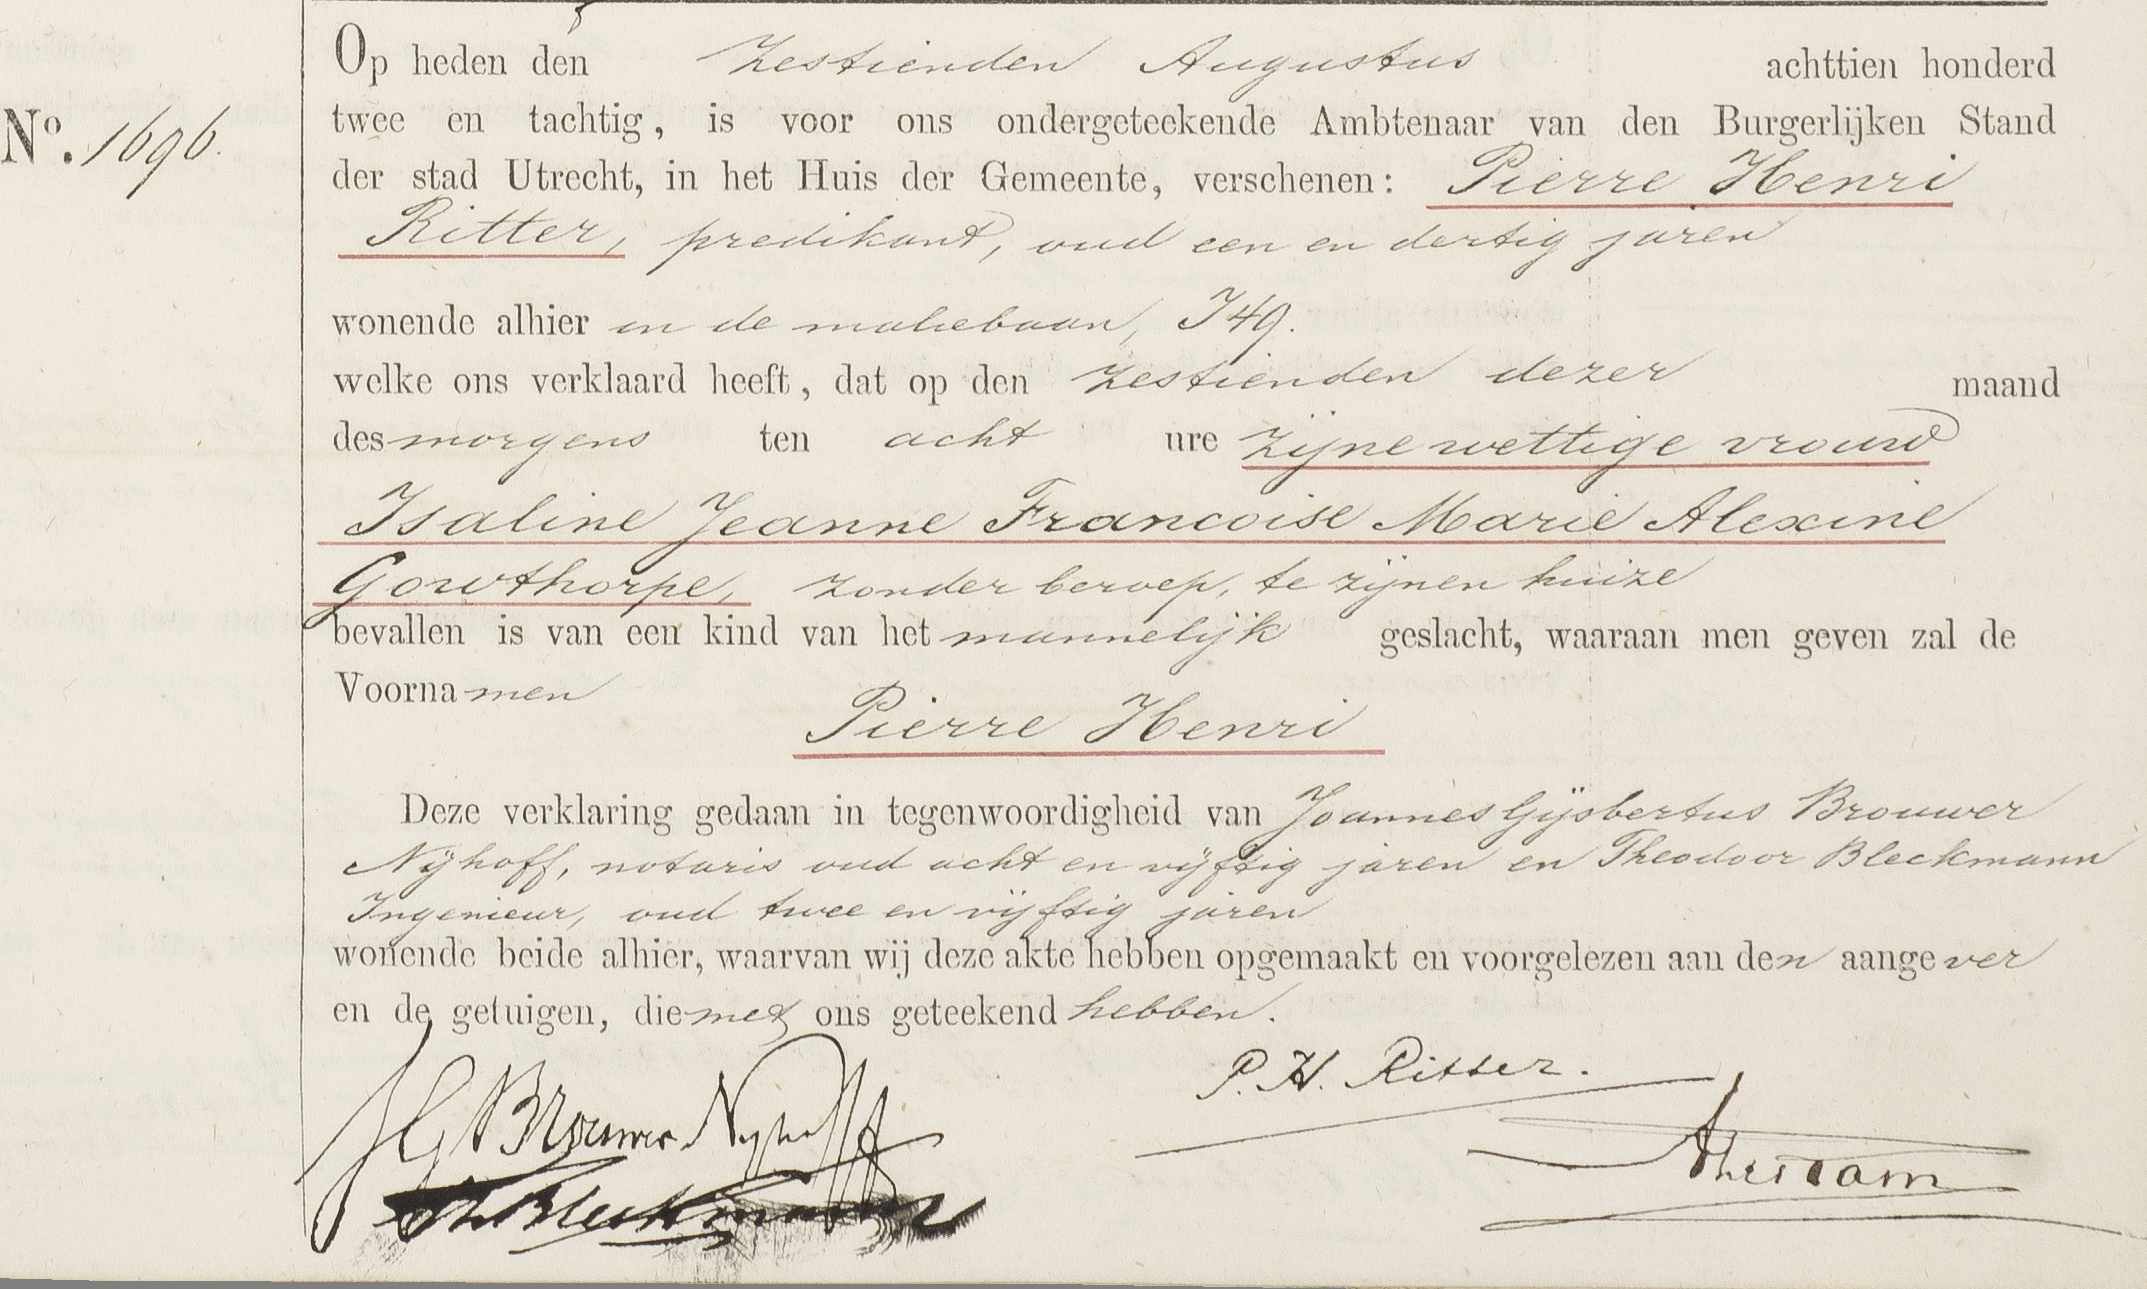 Op heden den zestienden Augustus achttien honderd
twee en tachtig, is voor ons ondergeteekende Ambtenaar van den Burgerlijken Stand
No. 1696.
der stad Utrecht, in het Huis der Gemeente, verschenen: Pierre Henri
Ritter, predikant, oud een en dertig jaren
wonende alhier in de maliebaan, I 49.
welke ons verklaard heeft, dat op den zestienden dezer maand
des morgens ten acht ure zijne wettige vrouw
Isaline Jeanne Francoise Marie Alexine
Gowthorpe, zonder beroep, te zijnen huize
bevallen is van een kind van het mannelijk geslacht, waaraan men geven zal de
Voornamen
Pierre Henri
Deze verklaring gedaan in tegenwoordigheid van Joannes Gijsbertus Brouwer
Nijhoff, notaris oud acht en vijftig jaren en Theodoor Bleckmann
Ingenieur, oud twee en vijftig jaren
wonende beide alhier, waarvan wij deze akte hebben opgemaakt en voorgelezen aan den aangever
en de getuigen, die met ons geteekend hebben.
P. H. Ritter.
JG Brouwer Nijhoff
Th Bleckmann